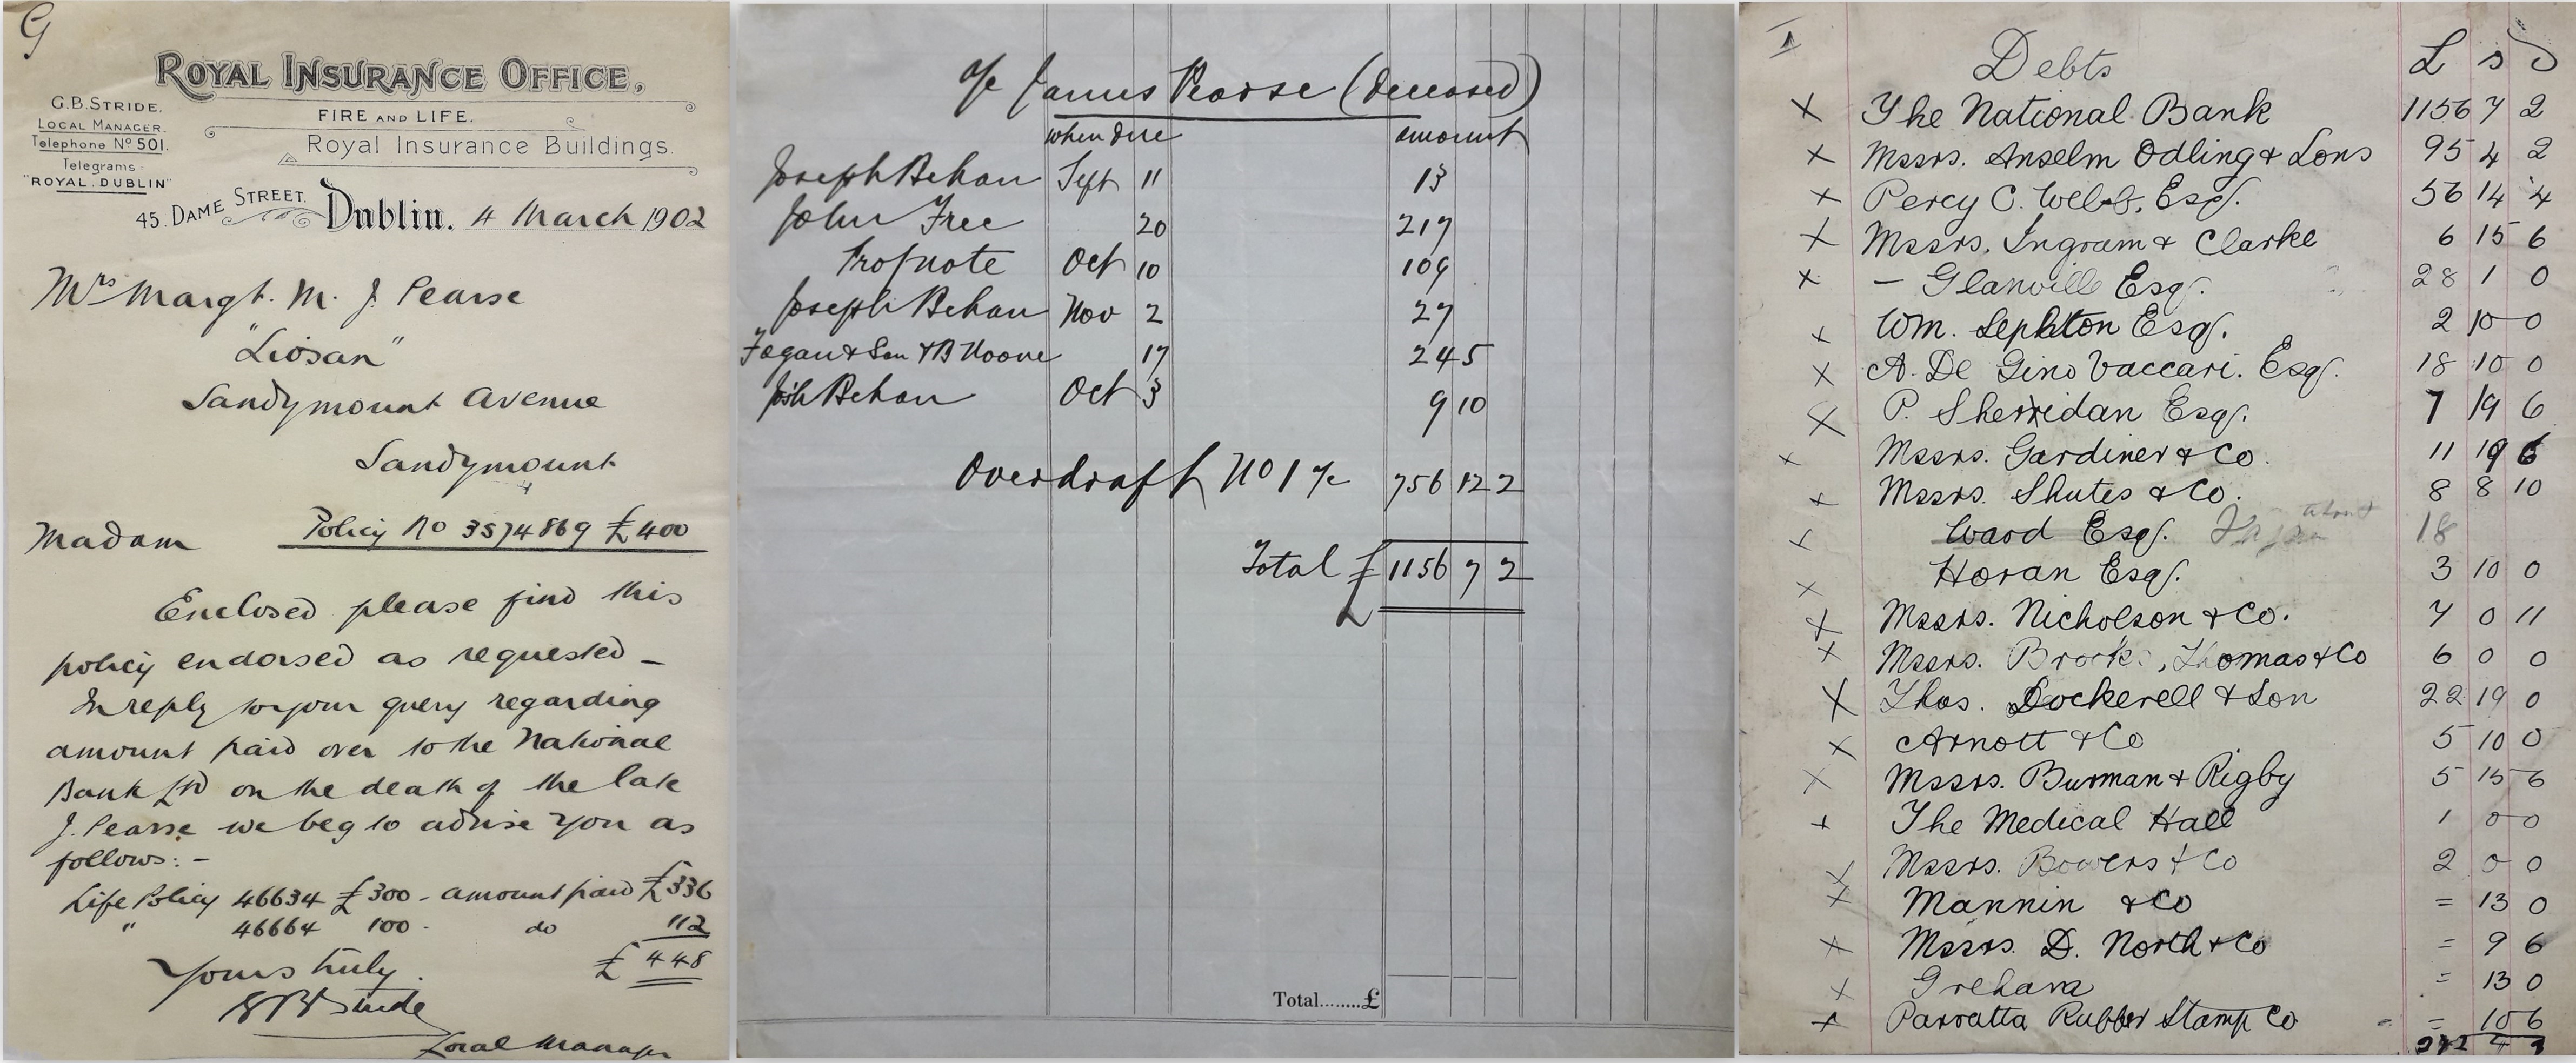 G
ROYAL INSURANCE OFFICE,
FIRE AND LIFE.
Royal Insurance Buildings.
G.B. STRIDE.
LOCAL MANAGER.
Telephone No 501.
Telegrams:
"ROYAL. DUBLIN"
45. DAME STREET. Dublin. 4 March 1902
Mrs Margt. M. J. Pearse
"Liosan"
Sandymount Avenue
Sandymount
Madam Policy No 3574869 £400
Enclosed please find this
policy endorsed as requested -
In reply to your query regarding
amount paid over to the National
Bank Ltd on the death of the late
J. Pearse we beg to advise you as
follows: -
Life Policy 46634 £300 - amount paid £336
" 46664 100 - do 112
£448
Yours truly.
GB Stride
Local Manager
a/c James Pearse (Deceased)
when due amount
Joseph Behan Sept 11 13
John Free 20 217
Prof note Oct 10 109
Joseph Behan Nov 2 27
Fagan & Son & B Moore 17 24 5
Josh Behan Oct 3 9 10
Overdraft No 1 a/c 756 12 2
Total £ 1156 7 2
Total........£
Debts L s D
x The National Bank 1156 7 2
x Mssrs. Anselm Odling & Sons 95 4 2
x Percy C. Webb, Esq. 56 14 4
x Mssrs. Ingram & Clarke 6 15 6
x - Glanville Esq. 28 1 0
x Wm. Sephton Esq. 2 10 0
x A. De Gino Vaccari. Esq. 18 10 0
x P. Sherridan Esq. 7 19 6
x Mssrs. Gardiner & Co. 11 19 6
x Mssrs. Shutes & Co. 8 8 10
x Ward Esq. about 18
x Horan Esq. 3 10 0
x Mssrs. Nicholson & Co. 7 0 11
x Mssrs. Brooks, Thomas & Co 6 0 0
x Thos. Dockerell & Son 22 19 0
x Arnott & Co 5 10 0
x Mssrs. Burman & Rigby 5 15 6
x The Medical Hall 1 0 0
x Mssrs. Bowers & Co 2 0 0
x Mannin & Co = 13 0
x Mssrs. D. North & Co = 9 6
x Greham = 13 0
x Parratta Rubber Stamp Co = 10 6